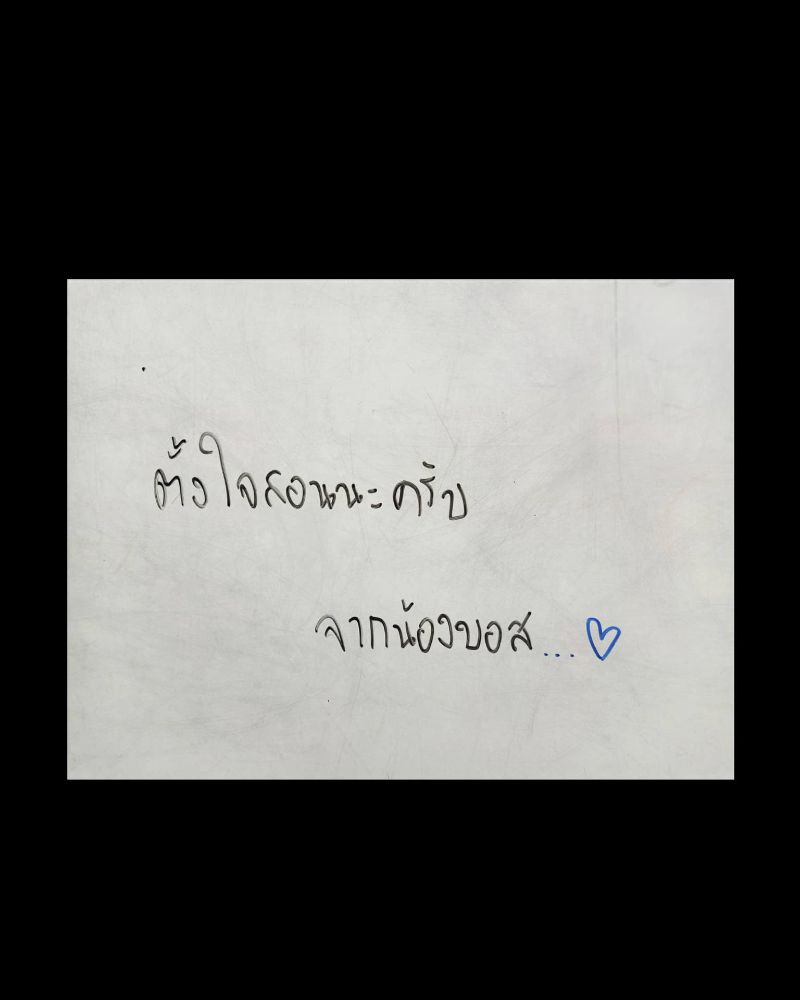 ตั้งใจสอนนะครับ
จากน้องบอส...♡